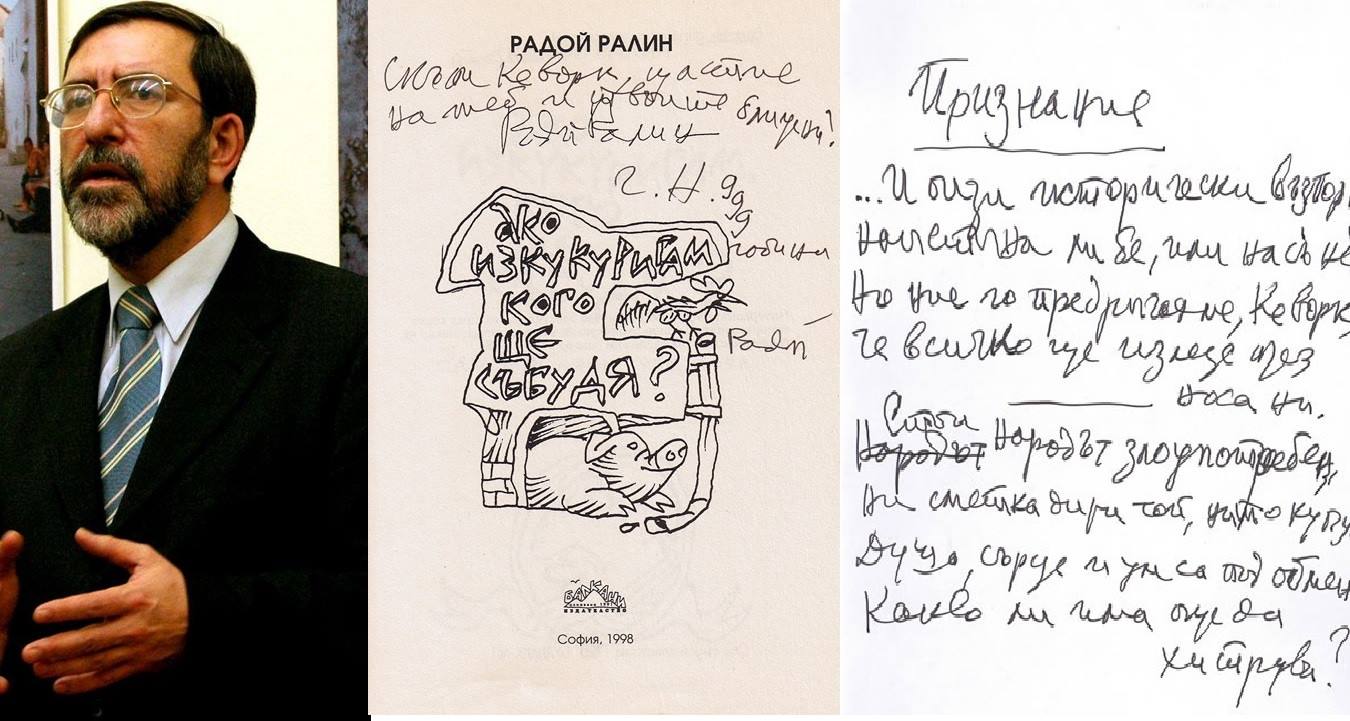 РАДОЙ РАЛИН
Кеворк, щастие
на теб и твоите близки!
Радой Ралин
г. Н. 99
година
АКО
ИЗКУКУРИГАМ
КОГО
ЩЕ
СЪБУДЯ?
Радой
БАЛКАНИ
ИЗДАТЕЛСТВО
София, 1998
Признание
...И тези исторически
ли бе, или насън
Но ние го предричахме, Кеворк
че всичко ще излезе през
носа ни.
Сити
Народът Народът злоупотребен,
ни сметка дири той, нито
Душа, сърце и ум са под
Какво ли има още да
хитрува?